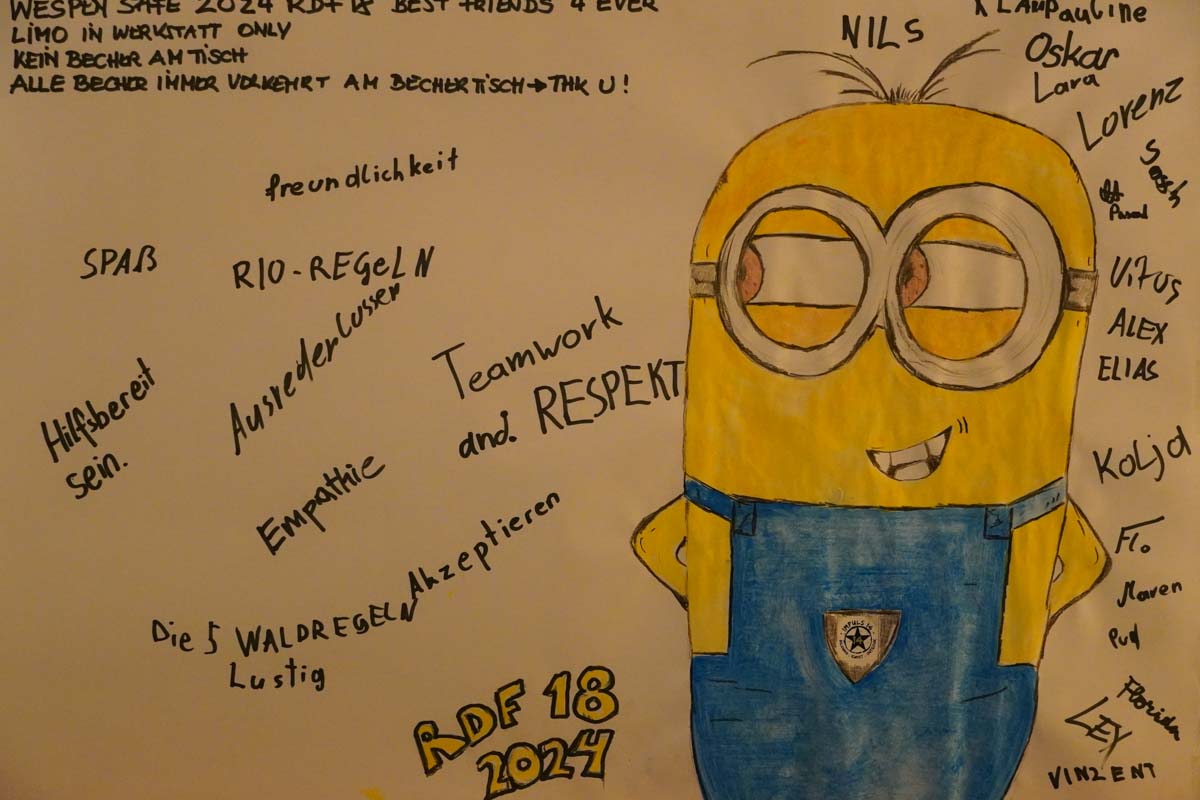 WESPEN SAFE 2024 RDF 18 BEST FRIENDS 4 EVER
LIMO IN WERKSTATT ONLY
KEIN BECHER AM TISCH
ALLE BECHER IMMER VERKEHRT AM BECHERTISCH → THK U!
freundlichkeit
SPAß
RIO-REGELN
Ausreden lassen
Hilfsbereit
sein.
Teamwork
and. RESPEKT
Empathie
Akzeptieren
Die 5 WALDREGELN
Lustig
RDF 18
2024
IMPULS
NILS
Pauline
Oskar
Lara
Lorenz
Pascal
Vitus
ALEX
ELIAS
Kolja
Flo
Maren
Florian
LEY
VINZENT